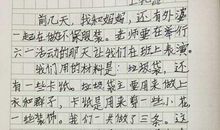 前几天，我和妈妈，还有外婆
一起在做环保服装。老师要在举行
六一活动的那天让我们在班上表演。
我们用的材料是：垃圾袋，还
有一些卡纸。垃圾袋主要用来做上
衣和裙子，卡纸是用来剪一些小花
一些装饰。我们一共做了三条，这